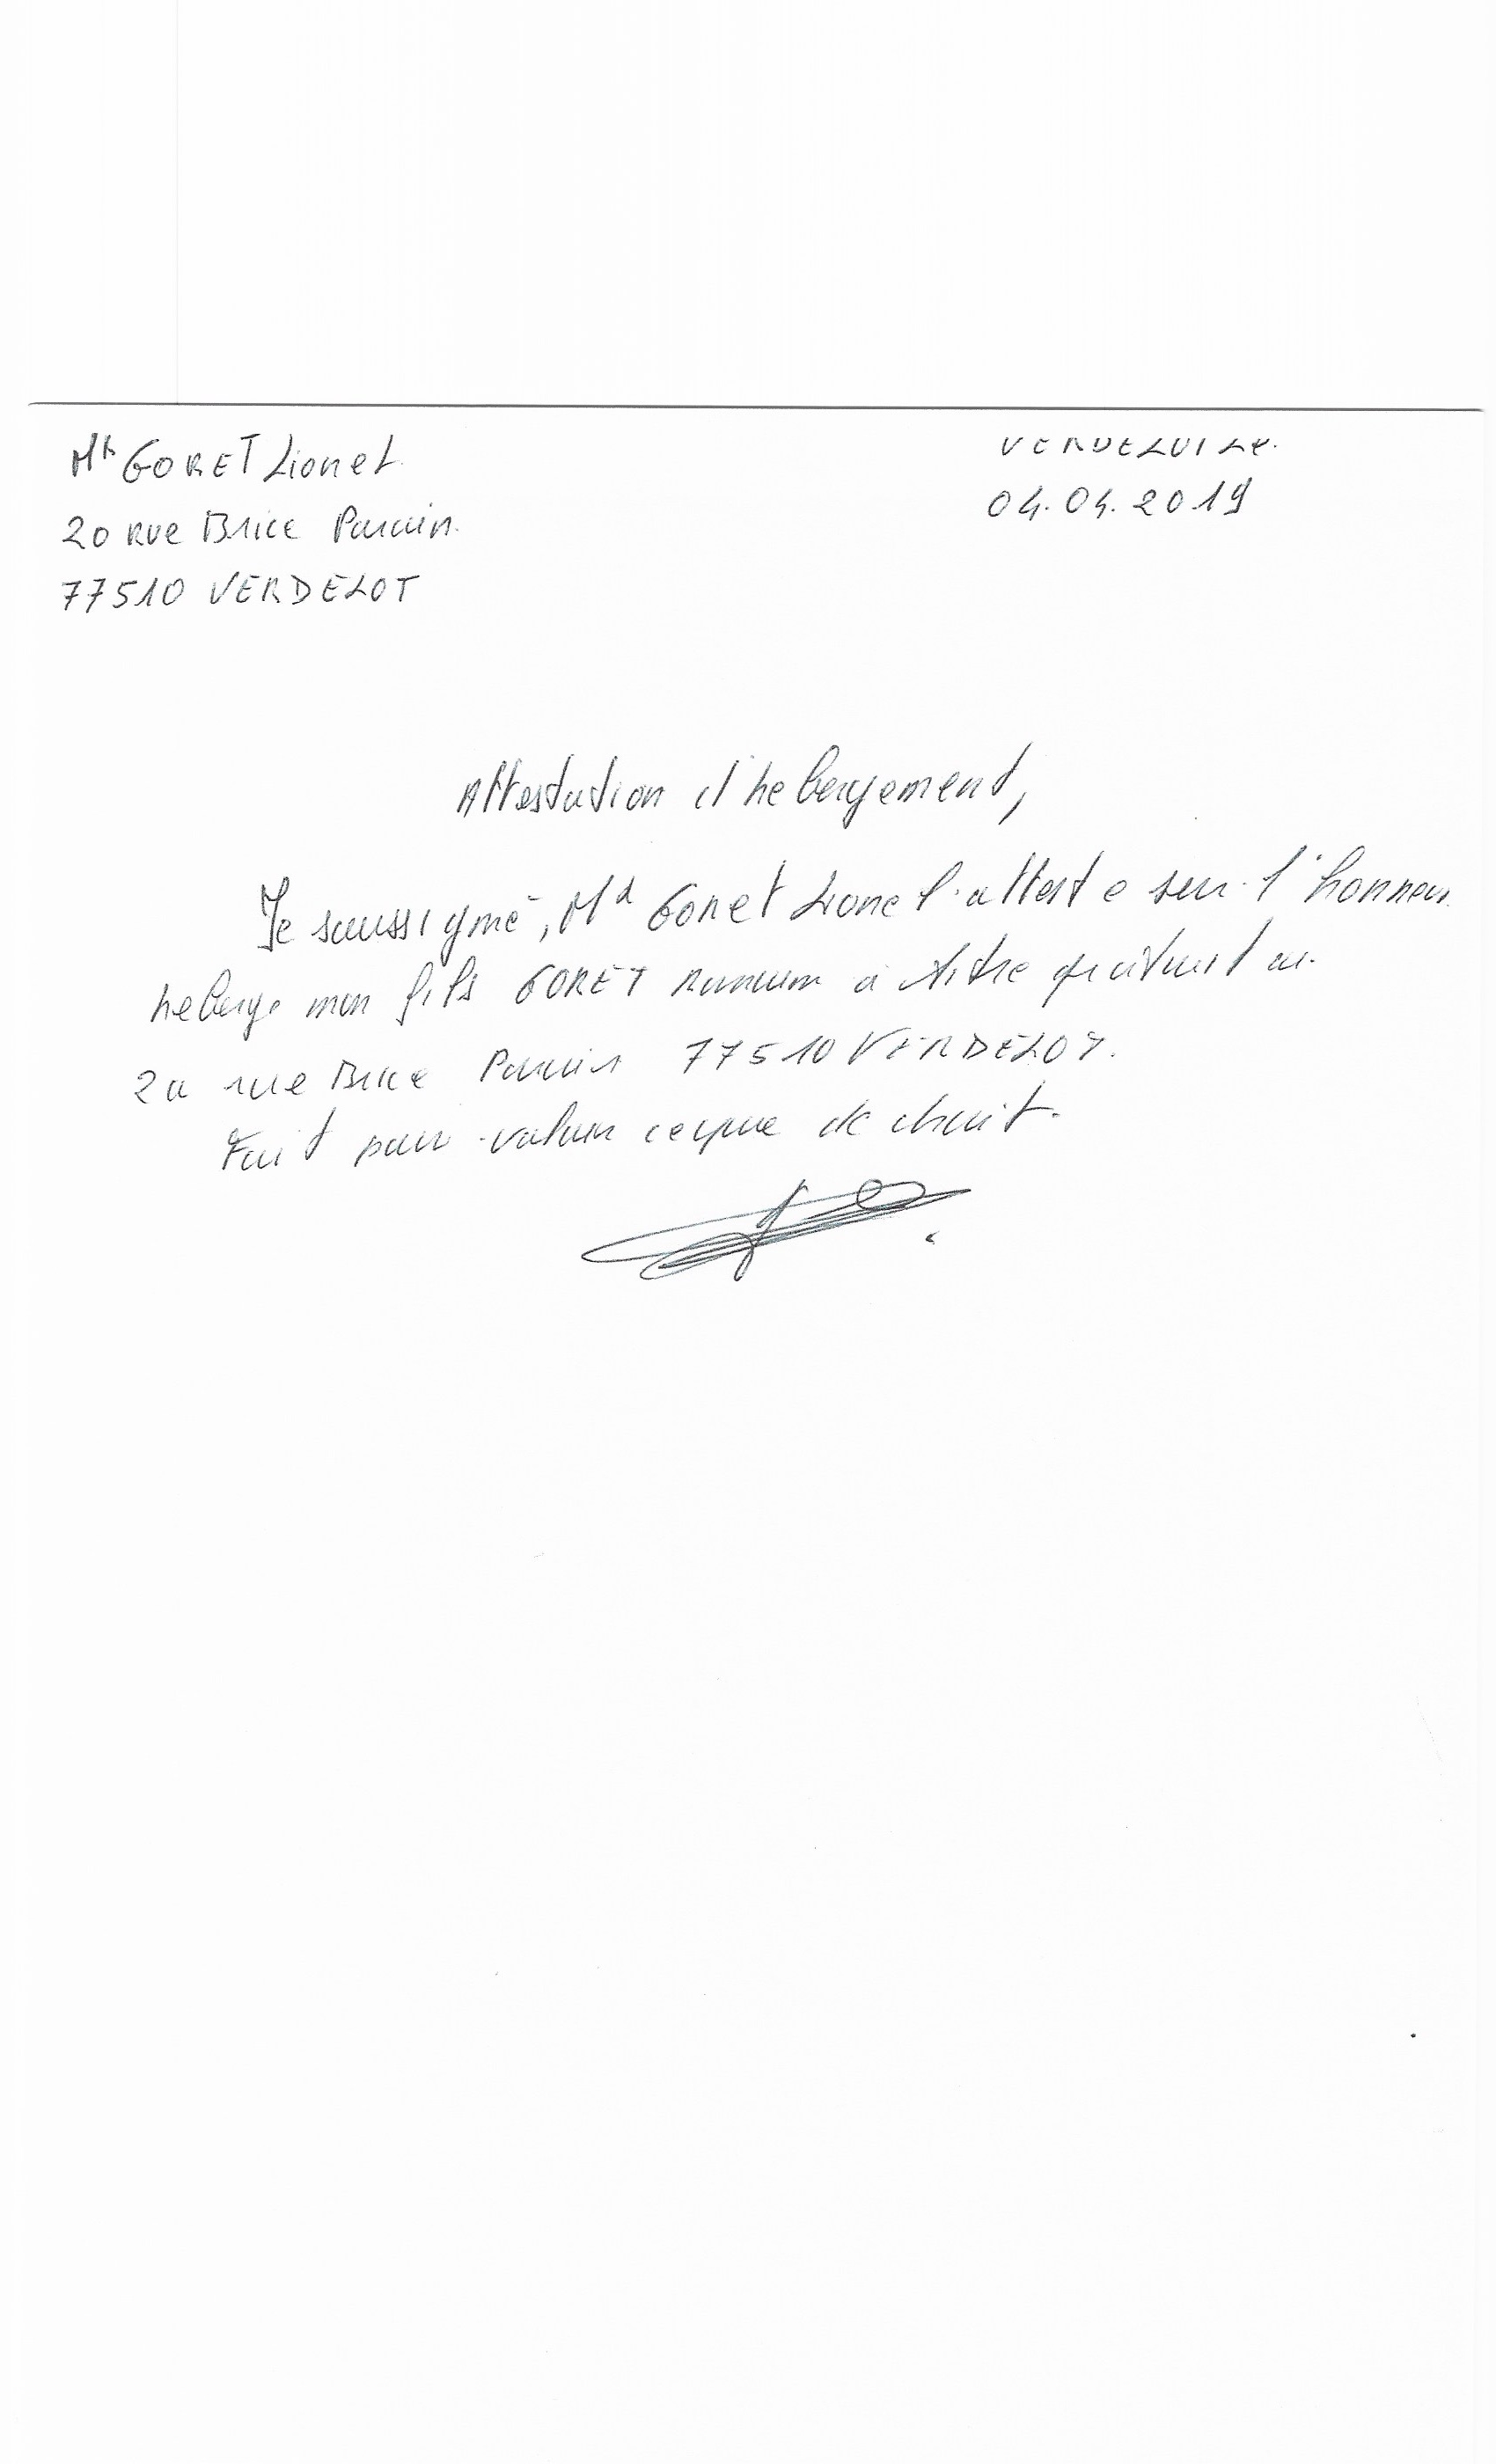 Mr GORET Lionel
20 rue Brice Parain
77510 VERDELOT
VERDELOT Le
04.04.2019
Attestation d'hebergement,
Je soussigné, Mr Goret Lionel atteste sur l'honneur
heberge mon fils GORET à titre gratuit au
20 rue Brice Parain 77510 VERDELOT.
Fait pour valoir ce que de droit.